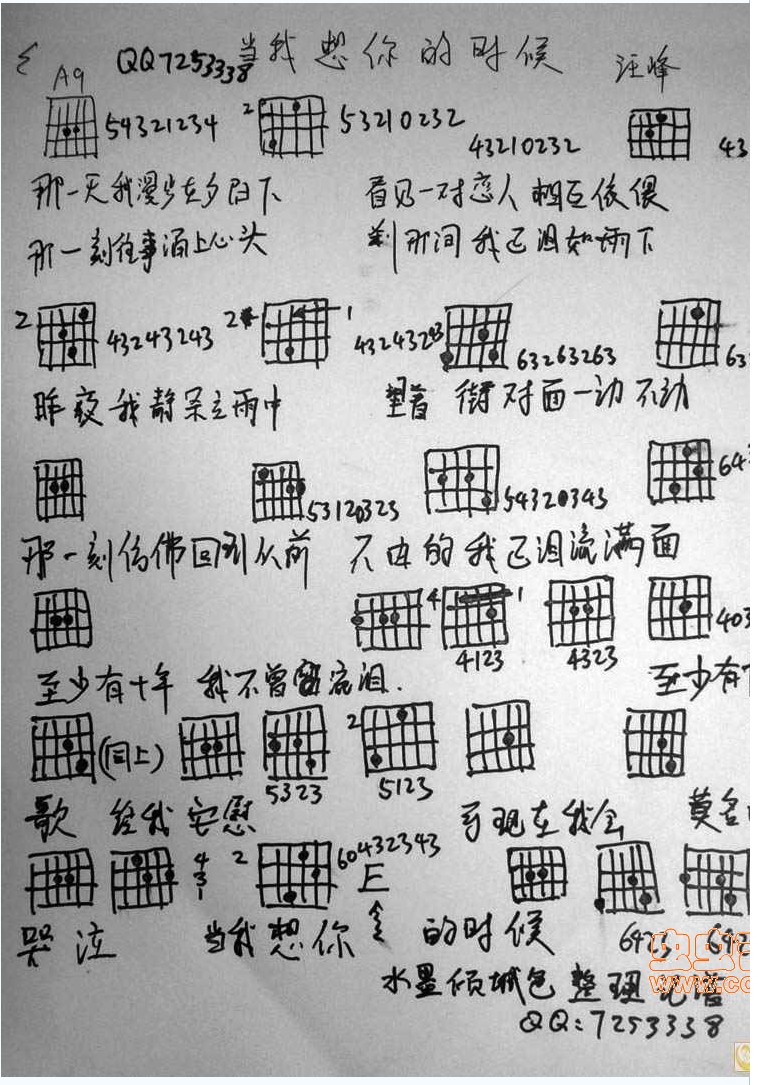 QQ7253338 当我想你的时候 汪峰
A9
54321234 2 53210232 43210232 43
那一天我漫步在夕阳下 看见一对恋人相互依偎
那一刻往事涌上心头 刹那间我已泪如雨下
2 43243243 2 1 43243243 63263263 63
昨夜我静呆立雨中 望着街对面一动不动
53120323 54320343 643
那一刻仿佛回到从前 不由的我已泪流满面
4 1 4123 4323 403
至少有十年 我不曾流泪. 至少有
(同上) 5323 2 5123
歌 给我安慰 可现在我会 莫名
4
3
1
2 60432343
E
哭泣 当我想你 的时候
6423 642
水墨倾城色 整理记谱
QQ:7253338